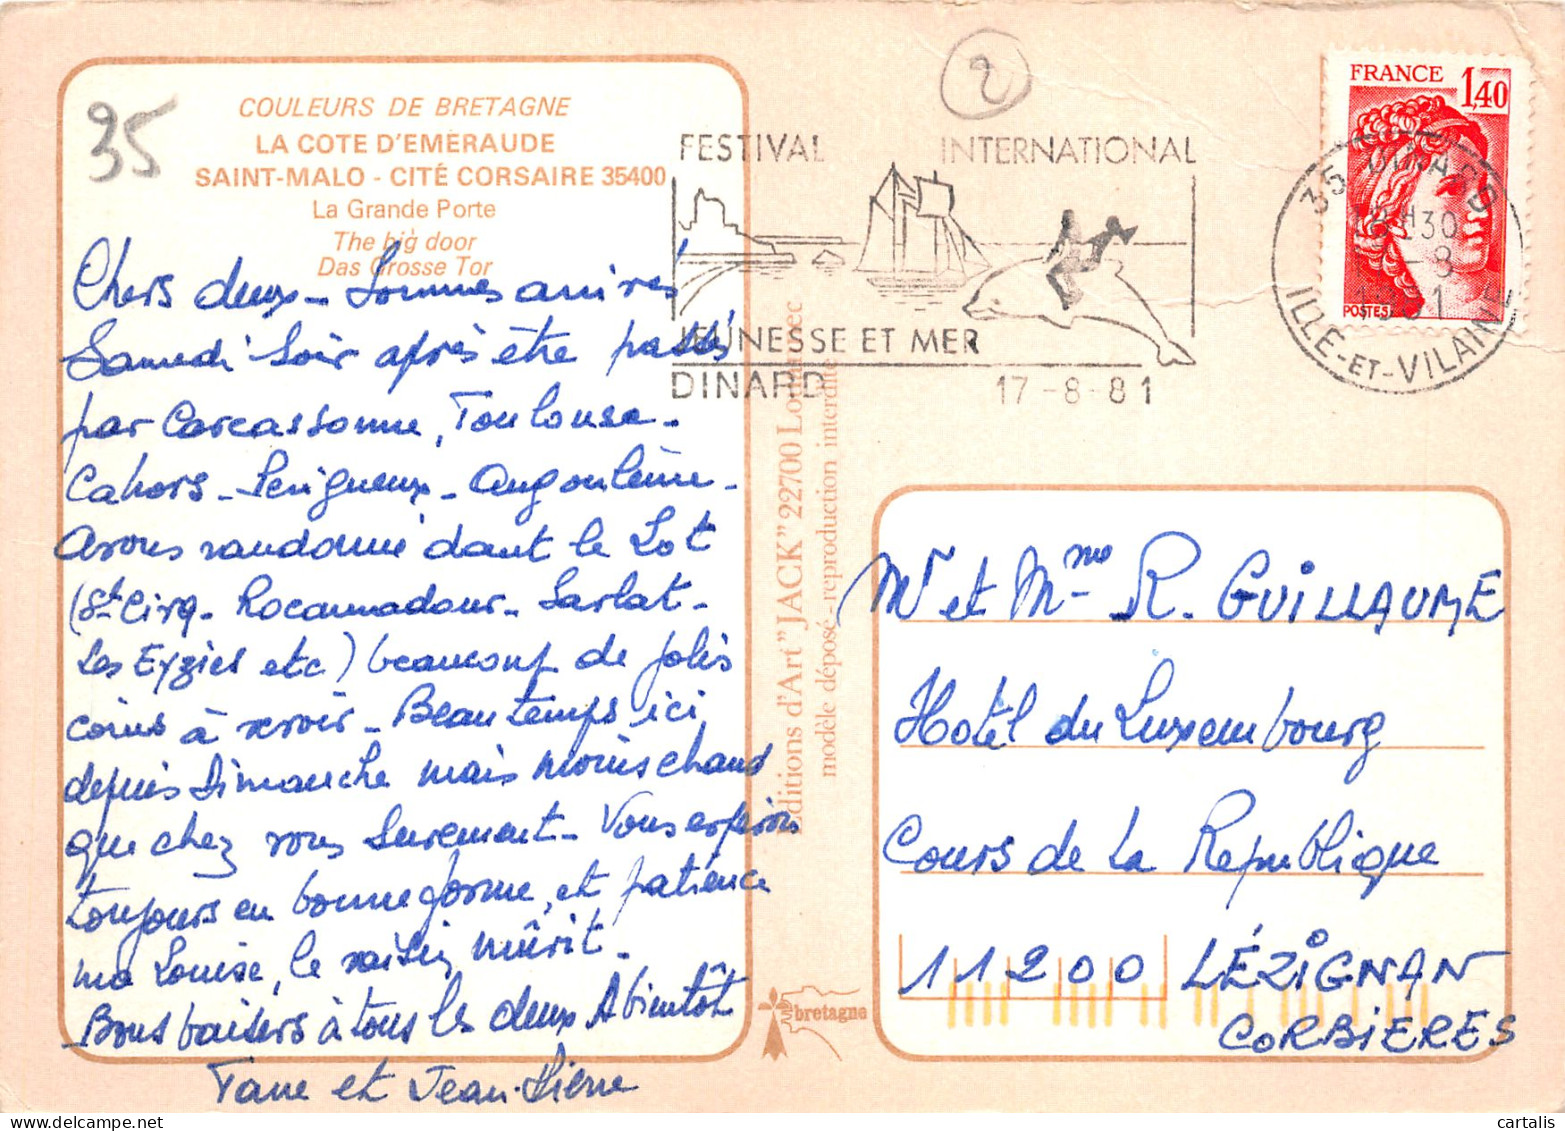 35
COULEURS DE BRETAGNE
LA COTE D'EMERAUDE
SAINT-MALO - CITÉ CORSAIRE 35400
La Grande Porte
The big door
Das Grosse Tor
Chers deux - Sommes arrivés
Samedi soir après être passés
par Carcassonne, Toulouse -
Cahors - Périgueux - Angoulême -
Avons randonné dant le Lot
(St Cirq - Rocamadour - Sarlat -
Les Eyzies etc) beaucoup de jolis
coins à revoir - Beau temps ici,
depuis Dimanche mais moins chaud
que chez vous surement - Vous espérons
toujours en bonne forme, et patience
ma Louise, le raisin mûrit -
Bons baisers à tous les deux A bientôt
et Jean-Pierre
Editions d'Art "JACK" 22700
modèle déposé - reproduction interdite
bretagne
2
FESTIVAL INTERNATIONAL
JEUNESSE ET MER
DINARD 17-8-81
FRANCE 1,40
POSTES
35 DINARD
ILLE-ET-VILAINE
Mr et Mme R. GUILLAUME
Hotel du Luxembourg
Cours de La Republique
11200 LÉZIGNAN
CORBIERES
cartalis
www.delcampe.net